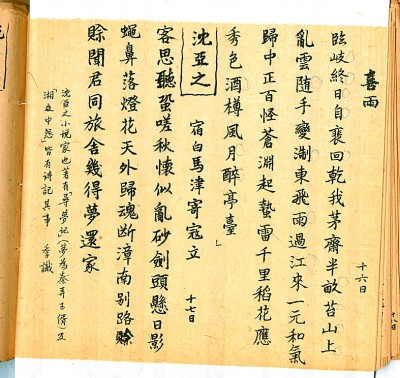 喜雨
十六日
臨岐終日自襄回乾我茅齋半畝苔山上
亂雲隨手變浙東飛雨過江來一元和氣
歸中正百怪蒼淵起蟄雷千里稻花應
秀色酒樽風月醉亭臺
沈亞之
宿白馬津寄寇立
十七日
客思聽蛩嗟秋懷似亂砂劍頭懸日影
蠅鼻落燈花天外歸魂斷漳南別路賒
賒聞君同旅舍幾得夢還家
沈亞之小说家也著有「尋夢記」(夢為秦弄玉倩)及
湘 中怨」皆有诗記其事 季識